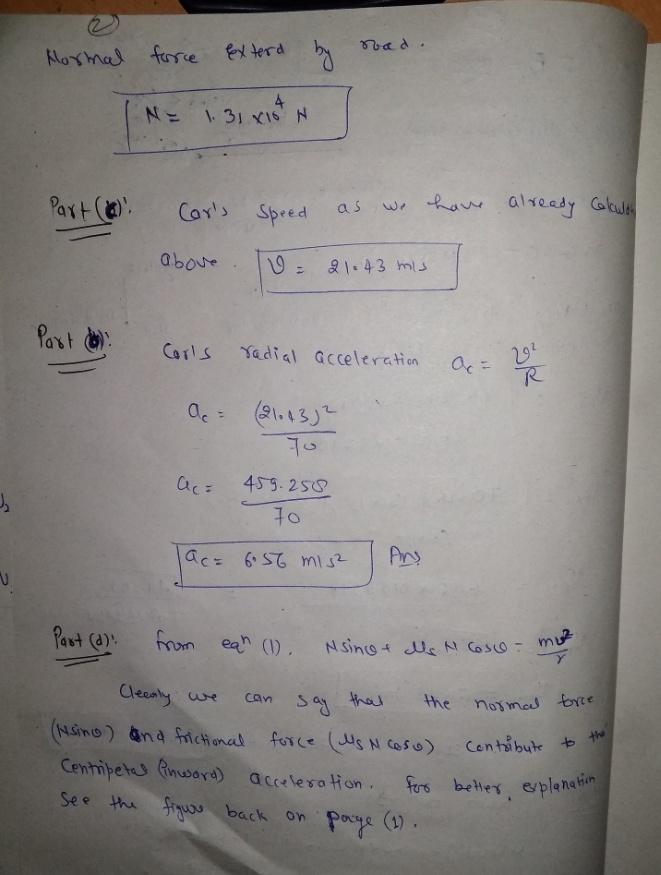 (2)
Normal force Exterd by road.
N = 1.31 x 10⁴ N
Part (a): Car's speed as we have already
above. v = 21.43 m/s
Part (b): Car's radial acceleration a_c = v²/R
a_c = (21.43)²/70
a_c = 459.258/70
a_c = 6.56 m/s² Ans
Part (d): from eqⁿ (1). N sinθ + μs N cosθ = mv²/r
Clearly we can say that the normal force
(N sinθ) and frictional force (μs N cosθ) contribute to the
Centripetal (inward) acceleration. for better explanation
See the figure back on page (1).